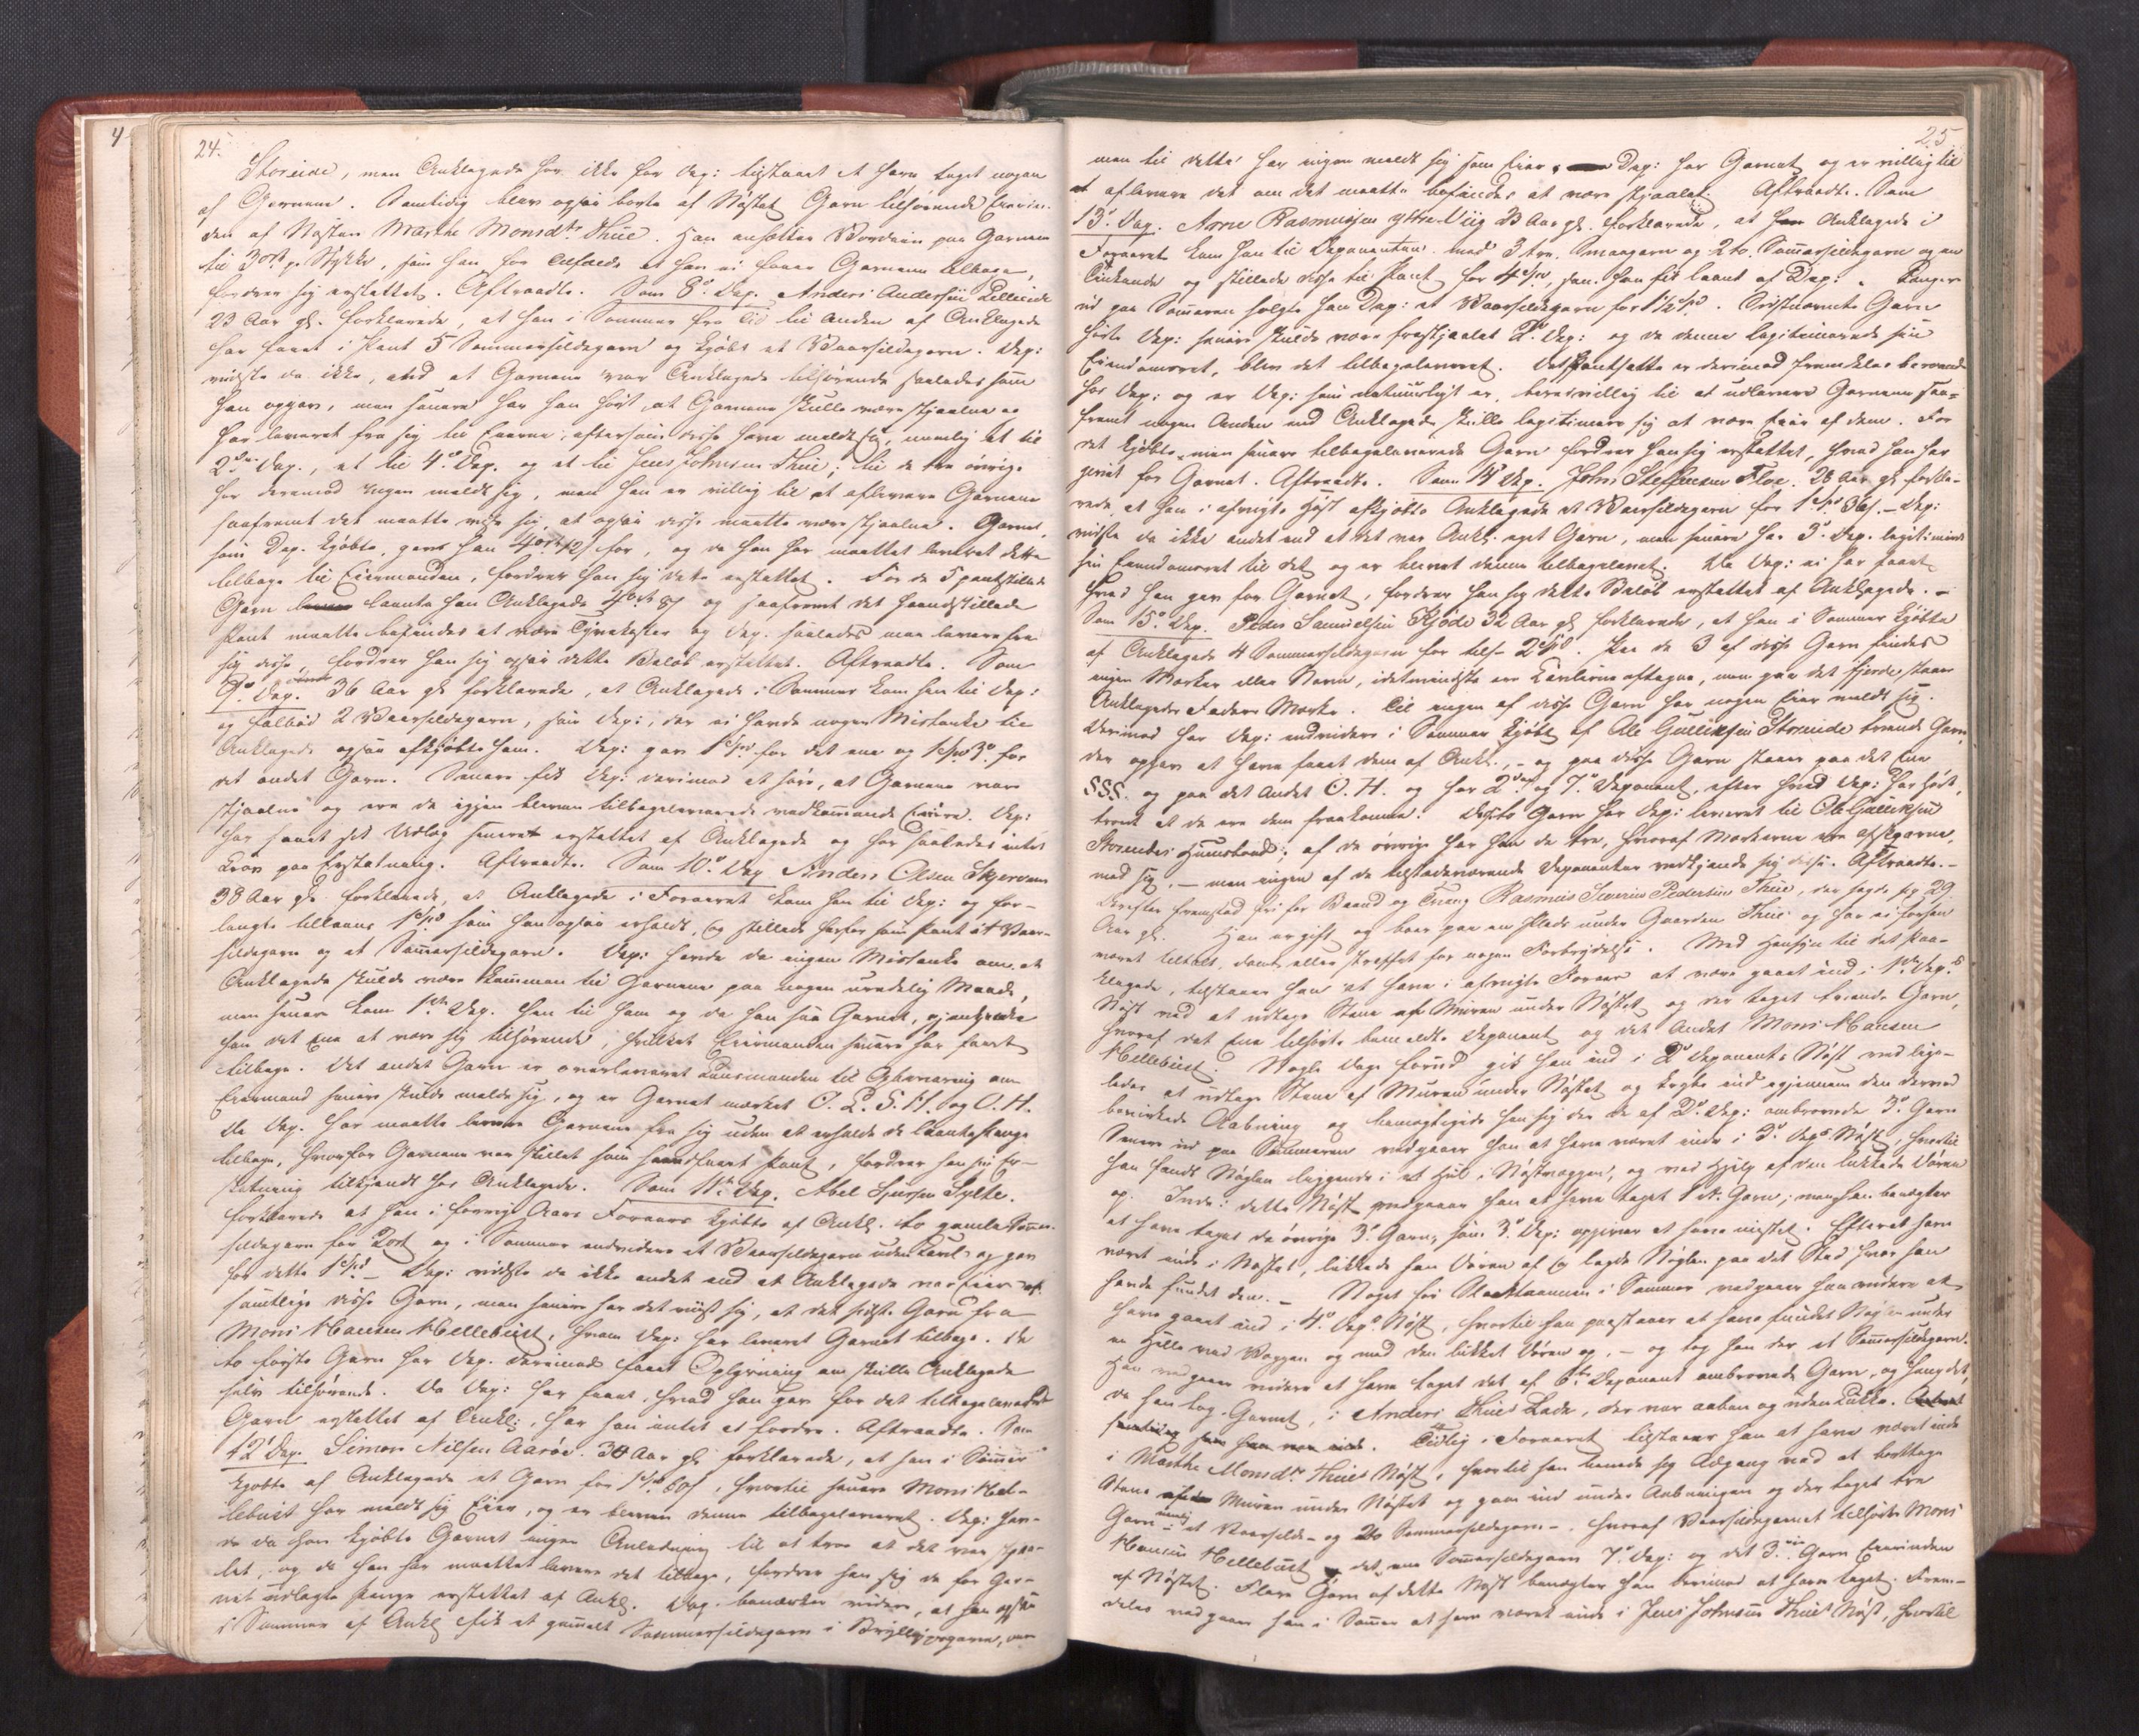 24.
Storeide, men Anklagede har ikke for Dep: tilstaaet at have taget nogen
af Garnene. Samtidig blev ogsaa borte af Nøstet Garn tilhørende Eierin-
den af Nøsten Marthe Monsdtr Thue. Han ansætter Værdien paa Garnene
til 3 ort pr. Stykke, som han for Tilfælde at han ei faaer Garnene tilbage,
fordrer sig erstattet. Aftraadte. Som 8de Dep. Anders Andersen
23 Aar gl. forklarede, at han i Sommer fra Tid til anden af Anklagede
har faaet i Pant 5 Sommersildegarn og kjøbt et Vaarsildegarn. Dep:
vidste da ikke, end at Garnene var Anklagede tilhørende saaledes som
han opgav, men senere har han hørt, at Garnene skulle være stjaalne og
har leveret fra sig til Eierne, eftersom disse have meldt sig, nemlig et til
2den Dep., et til 4de Dep. og et til Jens Johnsen Thue; til de tre øvrige
har derimod ingen meldt sig, men han er villig til at aflevere Garnene
saafremt det maatte vise sig, at ogsaa disse maatte være stjaalne. Garnet,
som Dep. kjøbte, gav han 4 ort 12 s for, og da han har maattet leveret dette
tilbage til Eiermanden, fordrer han sig dette erstattet. For de 5 pantstillede
Garn laante han Anklagede og saafremt det haandstillede
Pant maatte befindes at være Tyvekoster og Dep. saaledes maa levere fra
sig disse, fordrer han sig ogsaa dette Beløb erstattet. Aftraadte. Som
9de Dep. 36 Aar gl. forklarede, at Anklagede i Sommer kom hen til Dep:
og falbød 2 Vaarsildegarn, som Dep:, der ei havde nogen Mistanke til
Anklagede ogsaa afkjøbte ham. Dep: gav 1 Spd. for det ene og 1 Spd. 3 for
det andet Garn. Senere fik Dep: derimod at høre, at Garnene vare
stjaalne og ere de igjen blevne tilbageleverede vedkommende Eiere. Dep:
har faaet sit Udlæg senere erstattet af Anklagede og har saaledes intet
Krav paa Erstatning. Aftraadte. Som 10de Dep. Anders Olsen
38 Aar gl. forklarede, at Anklagede i Foraaret kom hen til Dep: og for-
langte tillaans 1 Spd som han ogsaa erholdt, og stillede herfor som Pant et Vaar-
sildegarn og et Sommersildegarn. Dep: havde da ingen Mistanke om, at
Anklagede skulde være kommen til Garnene paa nogen uredelig Maade,
men senere kom 1ste Dep. hen til ham og da han saa Garnet, gjenkjendte
han det Ene at være sig tilhørende, hvilket Eiermanden senere har faaet
tilbage. Det andet Garn er overleveret Lensmanden til Opbevaring om
Eiermand senere skulde melde sig, og er Garnet mærket
Da Dep. har maatte levere Garnene fra sig uden at erholde de laante Penge
tilbage, hvorfor Garnene var stillet som haandfaaet Pant, fordrer han sin Er-
statning tilkjendt hos Anklagede. Som 11te Dep. Abel
forklarede at han i forrige Aars Foraar kjøbte af Ankl. to gamle Sommer-
sildegarn for 2 ort og i Sommer endvidere et Vaarsildegarn uden og gav
for dette 1 Spd. – Dep: vidste da ikke andet end at Anklagede var Eier af
samtlige disse Garn, men senere har det viist sig, at det sidste Garn fra
Mons Hansen Hellebust, hvem Dep: har leveret Garnet tilbage. De
to første Garn har Dep. derimod faaet Oplysning om skulle Anklagede
selv tilhørende. Da Dep: har faaet, hvad han gav for det tilbageleverede
Garn erstattet af Ankl:, har han intet at fordre. Aftraadte. Som
12te Dep. Simon Nilsen Aarøe. 34 Aar gl. forklarede, at han i Sommer
kjøbte af Anklagede et Garn for 1 Spd 60 s, hvortil senere Mons Hel-
lebust har meldt sig Eier, og er bleven denne tilbageleveret. Dep: hav-
de da han kjøbte Garnet ingen Anledning til at tro at det var stjaa-
let, og da han har maattet levere det tilbage, fordrer han sig de for Gar-
net udlagte Penge erstattet af Ankl. Dep. bemærker videre, at han ogsaa
i Sommer af Ankl. fik et gammelt Sommersildegarn i
25
men til dette har ingen meldt sig som Eier, Dep: har Garnet og er villig til
at aflevere det om det maatte befindes at være stjaalet. Aftraadte. Som
13de Dep. Arne Rasmussen Ytre-Viig 23 Aar gl. forklarede, at Anklagede i
Foraaret kom hen til Deponenten med 3 tre Smaagarn og 2 to Sommersildegarn og en
og stillede disse til Pant for 4 Spd, som han fik laant af Dep: Længere
ud paa Sommeren solgte han Dep: et Vaarsildegarn for 1½ Spd. Sidstnævnte Garn
hørte Dep: senere skulde være frastjaalet 2d Dep: og da denne legitimerede sin
Eiendomsret, blev det tilbageleveret. Det Pantsatte er derimod fremdeles beroende
hos Dep: og er Dep: som naturligt er, beredvillig til at udlevere Garnene saa-
fremt nogen Anden end Anklagede skulle legitimere sig at være Eier af dem. For
det kjøbte, men senere tilbageleverede Garn fordrer han sig erstattet, hvad han har
givet for Garnet. Aftraadte. Som 14de Dep. John Steffensen Floe, 28 Aar gl. forkla-
rede, at han i afvigte Høst afkjøbte Anklagede et Vaarsildegarn for 1 Spd 36 s. – Dep:
vidste da ikke andet end at det var Ankl. eget Garn, men senere har 3de Dep. legitimeret
sin Eiendomsret til det og er blevet denne tilbageleveret. Da Dep: ei har faaet
hvad han gav for Garnet, fordrer han sig dette Beløb erstattet af Anklagede. –
Som 15de Dep. Peder Samuelsen Kjøde 32 Aar gl. forklarede, at han i Sommer kjøbte
af Anklagede 4 Sommersildegarn for tils. 2 Spd. Paa de 3 af disse Garn findes
ingen Mærker eller Navn, idetmindste ere aftagne, men paa det fjerde staaer
Anklagedes Faders Mærke. Til ingen af disse Garn har nogen Eier meldt sig.
Derimod har Dep: endvidere i Sommer kjøbt af Ole Gulliksen Storeide tvende Garn,
der opgav at have faaet dem af Ankl., – og paa disse Garn staaer paa det Ene
SSS. og paa det Andet O. H. og har 2den og 7de Deponent, efter hvad Dep: har hørt,
troet at de ere dem frakomne. Garn har Dep: leveret til Ole Gulliksens
Storeides; af de øvrige har han de tre, hvoraf Mærkerne ere afskaarne,
med sig, – men ingen af de tilstedeværende Deponenter vedkjende sig disse. Aftraadte. –
Derefter fremstod fri for Baand og Tvang Rasmus Severin Pedersen Thue, der sagde sig 29
Aar gl. Han er gift og boer paa en Plads under Gaarden Thue og har ei forhen
været tiltalt, dømt eller straffet for nogen Forbrydelse. Med Hensyn til det Paa-
klagede, tilstaaer han at have i afvigte Foraar at være gaaet ind i 1ste Dep.s
Nøst ved at udtage Stene af Muren under Nøstet og der taget tvende Garn,
hvoraf det Ene tilhørte bemeldte Deponent og det Andet Mons Hansen
Hellebust. Nogle Dage forud gik han ind i 2d Deponents Nøst ved lige-
ledes at udtage Stene af Muren under Nøstet og krybe ind igjennem den derved
bevirkede Aabning og bemægtigede han sig der de af 2d Dep: ombrevede 3de Garn
Senere ud paa Sommeren vedgaaer han at have været inde i 3de Dep.s Nøst, hvortil
han fandt Nøglen liggende i et Hul i Nøstvæggen, og ved Hjælp af den lukkede Døren
op. Inde i dette Nøst vedgaaer han at have taget 1 et Garn; men han benægter
at have taget de øvrige 3de Garn, som 3de Dep: opgiver at have mistet. Efterat have
været inde i Nøstet, lukkede han Døren af og lagde Nøglen paa det Sted hvor han
havde fundet den. – Noget før Slaataannen i Sommer vedgaaer han videre at
have gaaet ind i 4de Dep.s Nøst, hvortil han paastaaer at have fundet Nøglen under
en Helle ved Væggen og med den lukket Døren op, – og tog han der et Sommersildegarn.
Han vedgaaer videre at have taget det af 6te Deponent ombrevede Garn, og hang det,
da han tog Garnet, i Anders Thues Lade, der var aaben og uden Lukke.
Tidlig i Foraaret tilstaaer han at have været inde
i Marthe Monsdtr Thues Nøst, hvortil han banede sig Adgang ved at borttage
Stene af Muren under Nøstet og gaae ind under Aabningen og der taget tre
Garn nemlig: et Vaarsilde- og 2 to Sommersildegarn –, hvoraf Vaarsildegarnet tilhørte Mons
Hansen Hellebust, det ene Sommersildegarn 7de Dep: og det 3die Garn Eierinden
af Nøstet. Flere Garn af dette Nøst benægter han derimod at have taget. Frem-
deles vedgaaer han i Sommer at have været inde i Jens Johnsen Thues Nøst, hvortil